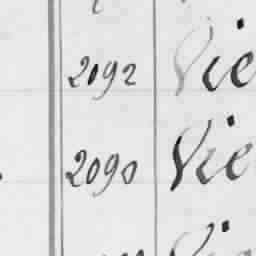 2092 Vie
2090 Vie